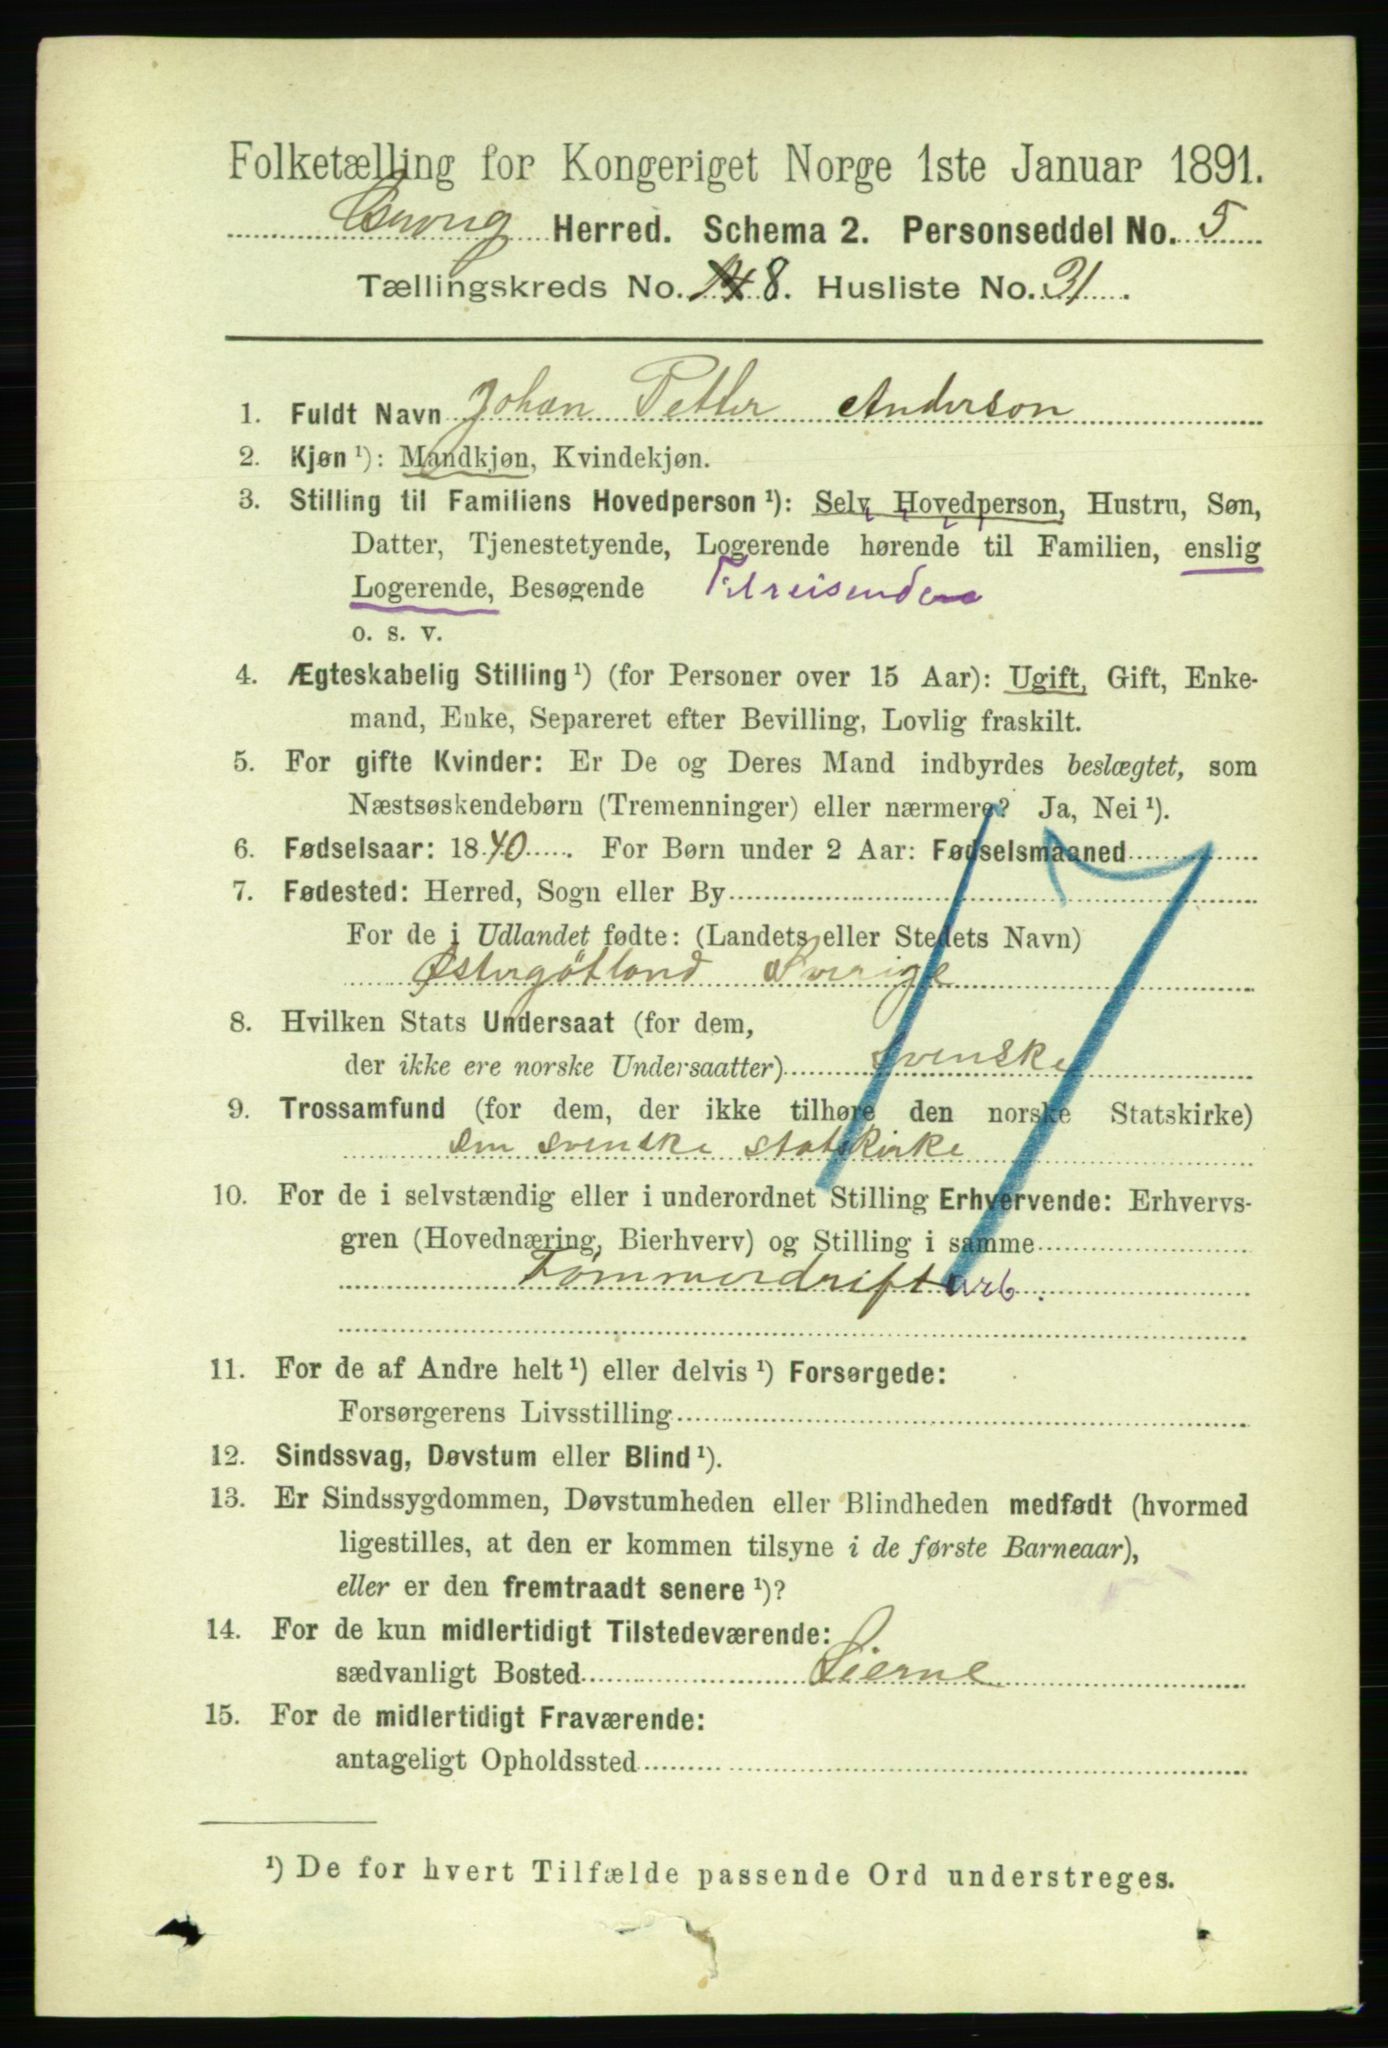 Folketælling for Kongeriget Norge 1ste Januar 1891.
Grong Herred. Schema 2. Personseddel No. 5
Tællingskreds No. 8. Husliste No. 31.
1. Fuldt Navn Johan Petter Anderson
2. Kjøn ¹): Mandkjøn, Kvindekjøn.
3. Stilling til Familiens Hovedperson ¹): Selv Hovedperson, Hustru, Søn,
Datter, Tjenestetyende, Logerende hørende til Familien, enslig
Logerende, Besøgende Tilreisende
o. s. v.
4. Ægteskabelig Stilling ¹) (for Personer over 15 Aar): Ugift, Gift, Enke-
mand, Enke, Separeret efter Bevilling, Lovlig fraskilt.
5. For gifte Kvinder: Er De og Deres Mand indbyrdes beslægtet, som
Næstsøskendebørn (Tremenninger) eller nærmere? Ja, Nei ¹).
6. Fødselsaar: 1840. For Børn under 2 Aar: Fødselsmaaned
7. Fødested: Herred, Sogn eller By
For de i Udlandet fødte: (Landets eller Stedets Navn)
Østergøtland Sverige
8. Hvilken Stats Undersaat (for dem,
der ikke ere norske Undersaatter) svenske
9. Trossamfund (for dem, der ikke tilhøre den norske Statskirke)
den svenske statskirke
10. For de i selvstændig eller i underordnet Stilling Erhvervende: Erhvervs-
gren (Hovednæring, Bierhverv) og Stilling i samme
Tømmerdrift arb.
11. For de af Andre helt ¹) eller delvis ¹) Forsørgede:
Forsørgerens Livsstilling
12. Sindssvag, Døvstum eller Blind ¹).
13. Er Sindssygdommen, Døvstumheden eller Blindheden medfødt (hvormed
ligestilles, at den er kommen tilsyne i de første Barneaar),
eller er den fremtraadt senere ¹)?
14. For de kun midlertidigt Tilstedeværende:
sædvanligt Bosted Lierne
15. For de midlertidigt Fraværende:
antageligt Opholdssted
¹) De for hvert Tilfælde passende Ord understreges.